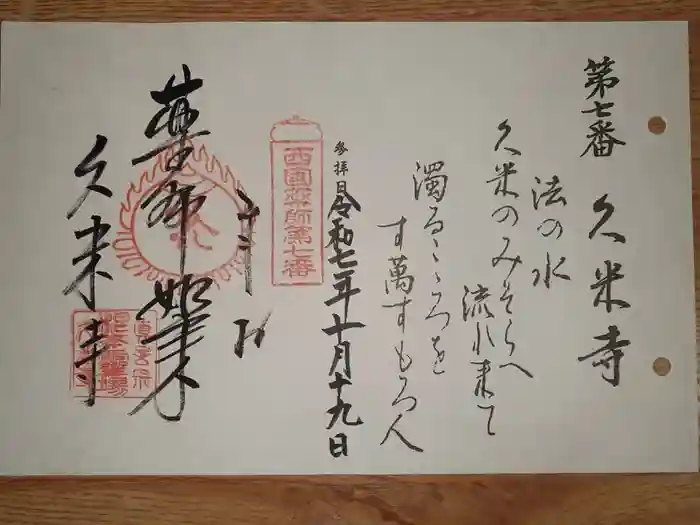 第七番 久米寺
法の水
久米のみそらへ
流れ来て
濁るこゝろを
す萬すもろ人
参拝日 令和七年十月十九日
西国薬師第七番
薬師如来
久米寺